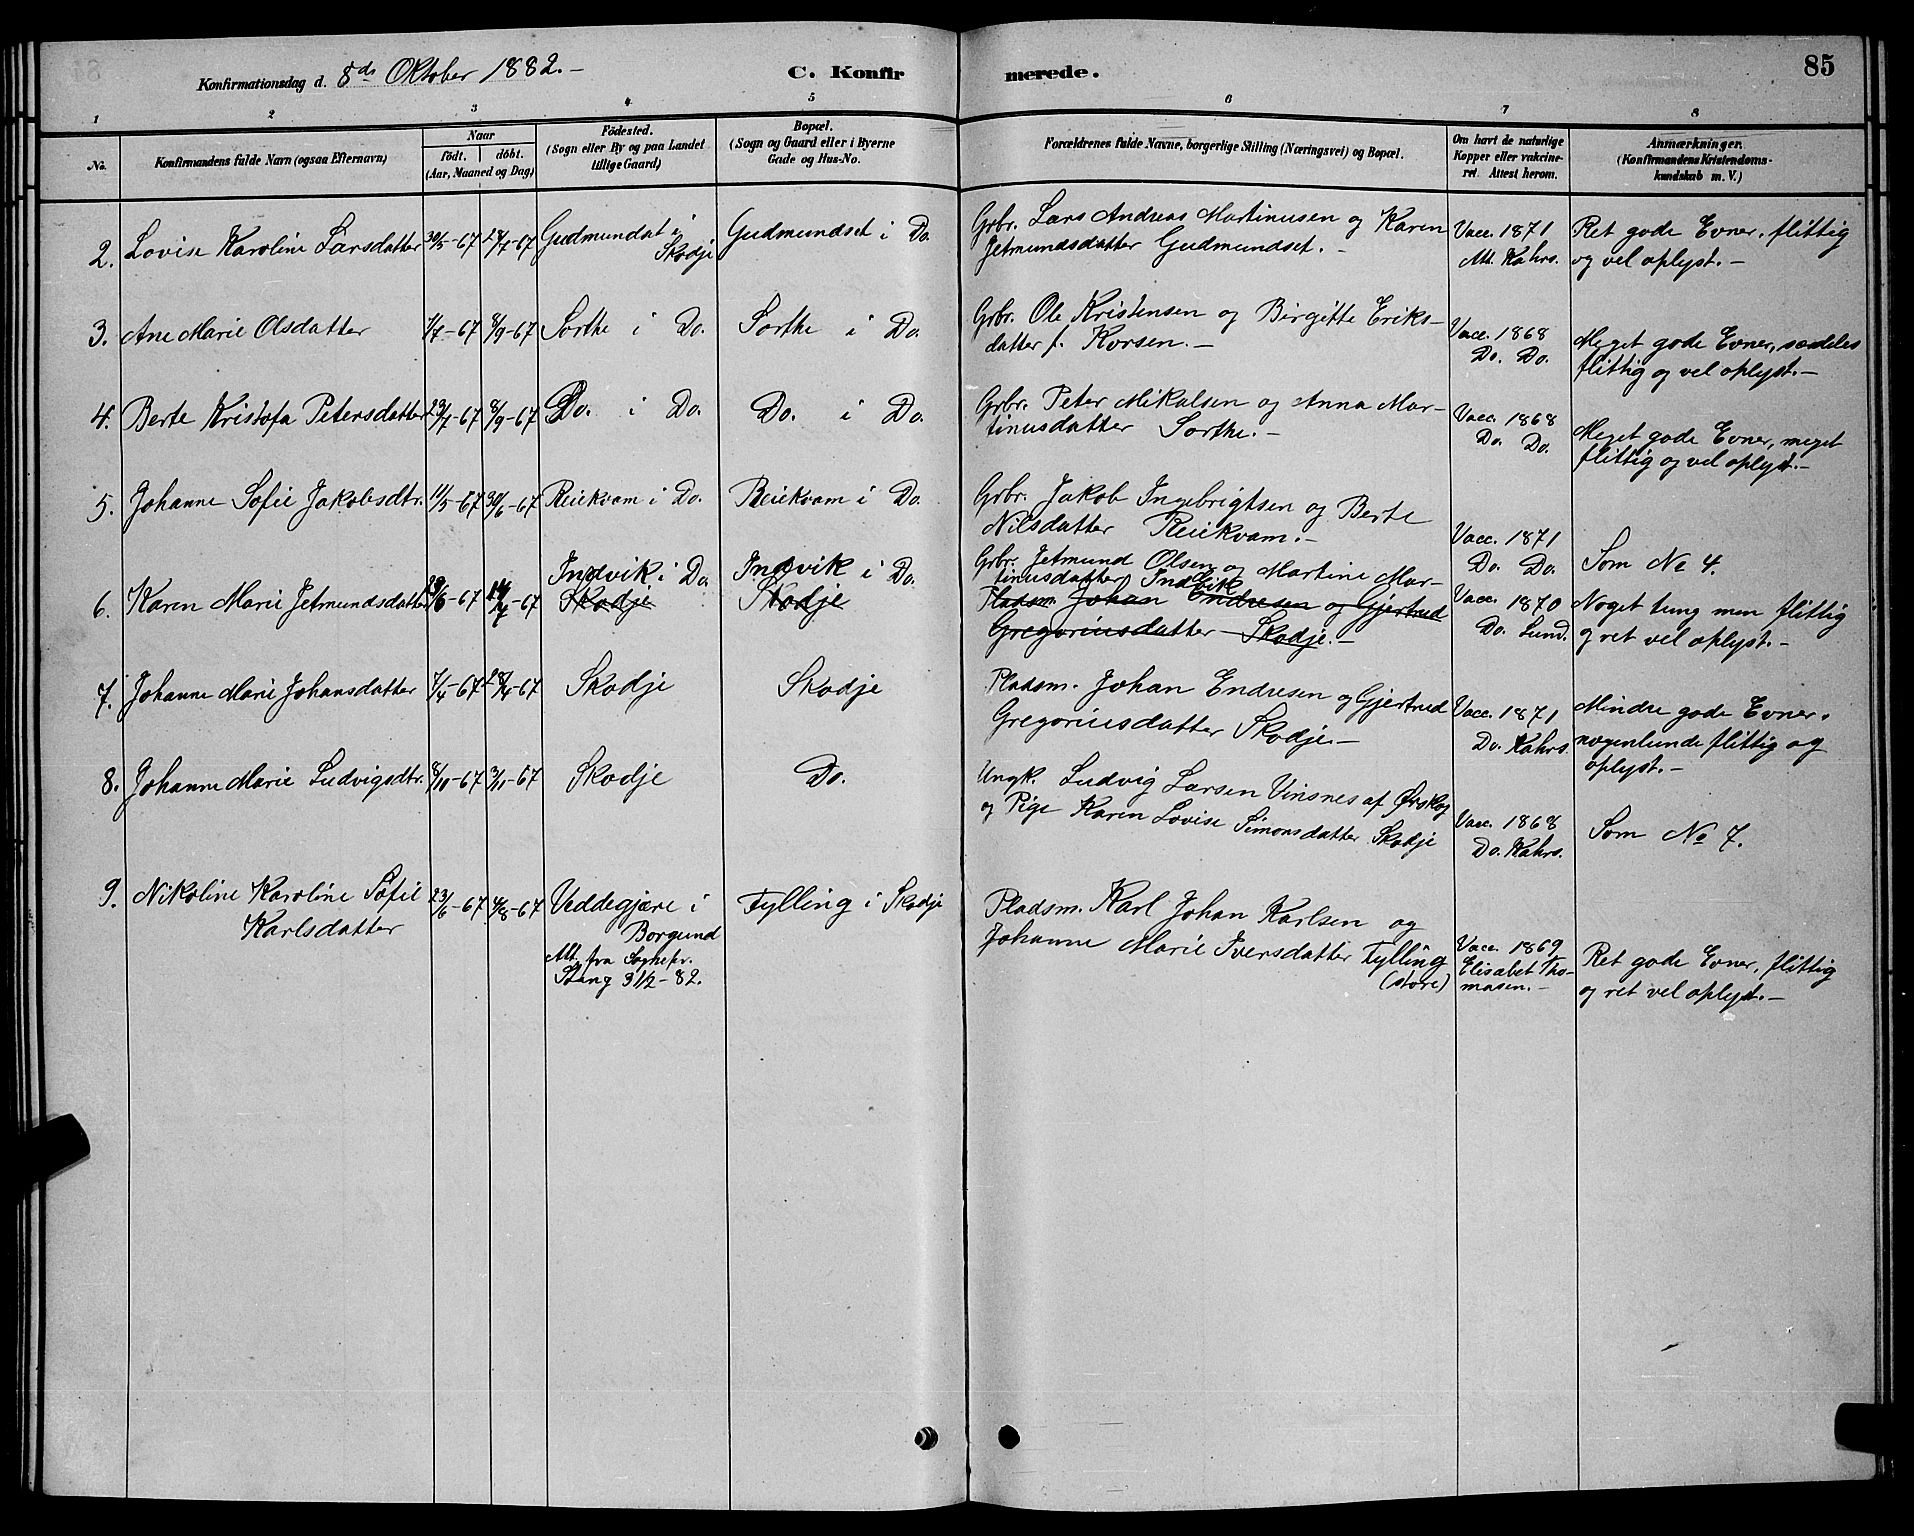 Konfirmationsdag d. 8de Oktober 1882.- C. Konfirmerede. 85
1 2 3 4 5 6 7 8
No. Konfirmandens fulde Navn (ogsaa Efternavn) Naar födt. döbt. (Aar, Maaned og Dag) Födested. (Sogn eller By og paa Landet tillige Gaard) Bopæl. (Sogn og Gaard eller i Byerne Gade og Hus-No. Forældrenes fulde Navne, borgerlige Stilling (Næringsvei) og Bopæl. Om havt de naturlige Kopper eller vakcineret. Attest herom. Anmærkninger. (Konfirmandens Kristendomskundskab m. V.)
2. Lovise Karoline Larsdatter 30/5-67 67 Gudmundset i Skodje Gudmundset i Do. Grbr. Lars Andreas Martinusen og Karen
Jetmundsdatter Gudmundset.- Vacc. 1871 Att. Kahrs. Ret gode Evner, flittig
og vel oplyst.-
3. Ane Marie Olsdatter 67 8/9-67 Sorthe i Do. Sorthe i Do. Grbr. Ole Kristensen og Birgitte Eriks-
datter f. Korsen.- Vacc. 1868 Do. Do. Meget gode Evner, særdeles
flittig og vel oplyst.-
4. Berte Kristofa Petersdatter 67 8/9-67 Do. i Do. Do. i Do. Grbr. Peter Mikalsen og Anna Mar-
tinusdatter Sorthe.- Vacc. 1868 Do. Do. Meget gode Evner, meget
flittig og vel oplyst.-
5. Johanne Sofie Jakobsdtr. 11/5-67 30/6-67 Reiekvam i Do. Reiekvam i Do. Grbr. Jakob Ingebrigtsen og Berte
Nilsdatter Reiekvam.- Vacc. 1871 Do. Do. Som No 4.
6. Karen Marie Jetmundsdatter 67 67 Indvik i Do. Indvik i Do. Grbr. Jetmund Olsen og Martine Mar-
tinusdatter Indvik
Skodje Skodje Pladsm. Johan Endresen og Gjertrud
Gregoriusdatter Skodje.- Vacc. 1870 Do. Lund. Noget tung men flittig
og ret vel oplyst.-
7. Johanne Marie Johansdatter 7/4-67 28/4-67 Skodje Skodje Pladsm. Johan Endresen og Gjertrud
Gregoriusdatter Skodje.- Vacc. 1871 Do. Kahrs Mindre gode Evner.
nogenlunde flittig og
oplyst.-
8. Johanne Marie Ludvigsdtr. 8/10-67 3/11-67 Skodje Do. Ungk. Ludvig Larsen Vinsnes af Ørskog
og Pige Karen Lovise Simonsdatter Skodje Vacc. 1868 Do. Kahrs. Som No 7.
9. Nikoline Karoline Sofie 23/6-67 4/8-67 Veddegjære i Fylling i Skodje Pladsm. Karl Johan Karlsen og
Karlsdatter Borgund Johanne Marie Iversdatter Fylling
(store)
Att. fra Sognepr.
Stang 31/2-82.
Vacc. 1869
Elisabet Tho-
masen.-
Ret gode Evner, flittig
og ret vel oplyst.-